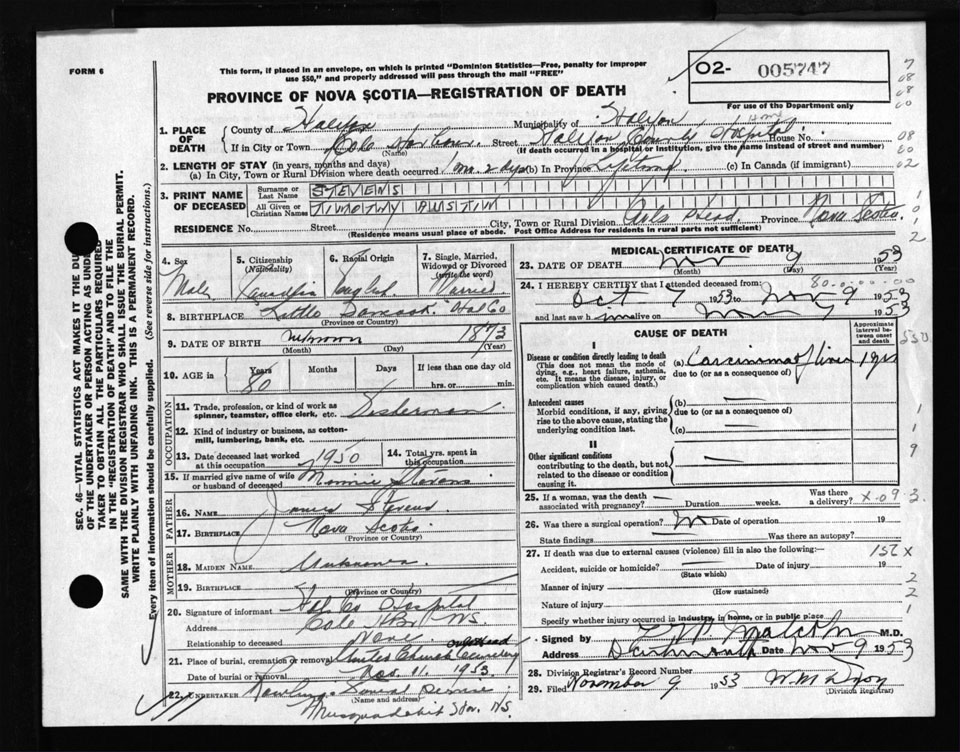 FORM 6
This form, if placed in an envelope, on which is printed "Dominion Statistics—Free, penalty for improper
use $50," and properly addressed will pass through the mail "FREE"
02- 005747
PROVINCE OF NOVA SCOTIA—REGISTRATION OF DEATH
For use of the Department only
1. PLACE OF DEATH
County of Halifax Municipality of Halifax
If in City or Town Cole Harbour (Name) Street Halifax County Hospital House No.
(If death occurred in a hospital or institution, give the name instead of street and number)
2. LENGTH OF STAY (in years, months and days)
(a) In City, Town or Rural Division where death occurred 1 m. 2 days (b) In Province Lifetime (c) In Canada (if immigrant)
3. PRINT NAME OF DECEASED
Surname or Last Name STEVENS
All Given or Christian Names TIMOTHY AUSTIN
RESIDENCE No. Street City, Town or Rural Division Owls Head Province Nova Scotia
(Residence means usual place of abode. Post Office Address for residents in rural parts not sufficient)
4. Sex Male
5. Citizenship (Nationality) Canadian
6. Racial Origin English
7. Single, Married, Widowed or Divorced (write the word) Married
8. BIRTHPLACE Little Hal Co
(Province or Country)
9. DATE OF BIRTH unknown 1873
(Month) (Day) (Year)
10. AGE in Years 80 Months Days If less than one day hrs. or min.
OCCUPATION
11. Trade, profession, or kind of work as spinner, teamster, office clerk, etc. Fisherman
12. Kind of industry or business, as cotton-mill, lumbering, bank, etc.
13. Date deceased last worked at this occupation 1950
14. Total yrs. spent in this occupation
15. If married give name of wife or husband of deceased Minnie Stevens
FATHER
16. NAME James Stevens
17. BIRTHPLACE Nova Scotia
(Province or Country)
MOTHER
18. MAIDEN NAME Unknown
19. BIRTHPLACE
(Province or Country)
20. Signature of informant Hal. Co Hospital
Address Cole Hbr NS
Relationship to deceased None
21. Place of burial, cremation or removal United Church Cemetery Owls Head
Date of burial or removal Nov. 11. 1953
22. UNDERTAKER
(Name and address)
Musquodoboit Har. NS.
MEDICAL CERTIFICATE OF DEATH
23. DATE OF DEATH Nov 9 1953
(Month) (Day) (Year)
24. I HEREBY CERTIFY that I attended deceased from
Oct 7 1953 to Nov 9 1953
and last saw h im alive on Nov 1953
CAUSE OF DEATH
Approximate interval between onset and death
I
Disease or condition directly leading to death
(This does not mean the mode of dying, e.g., heart failure, asthenia, etc. It means the disease, injury, or complication which caused death.)
(a) Carcinoma of liver 1 yr
due to (or as a consequence of)
Antecedent causes
Morbid conditions, if any, giving rise to the above cause, stating the underlying condition last.
(b) —
due to (or as a consequence of)
(c) —
II
Other significant conditions
contributing to the death, but not related to the disease or condition causing it.
25. If a woman, was the death associated with pregnancy? — Duration weeks. Was there a delivery?
26. Was there a surgical operation? No Date of operation 19
State findings Was there an autopsy?
27. If death was due to external causes (violence) fill in also the following:—
Accident, suicide or homicide? — Date of injury 19
(State which)
Manner of injury
(How sustained)
Nature of injury
Specify whether injury occurred in industry, in home, or in public place
Signed by Malcolm M.D.
Address Dartmouth Date Nov 9 1953
28. Division Registrar's Record Number
29. Filed November 9 1953 W. M.
(Division Registrar)
SEC. 46—VITAL STATISTICS ACT MAKES IT THE DU
OF THE UNDERTAKER OR PERSON ACTING AS UNDER
TAKER TO OBTAIN ALL THE PARTICULARS REQUIRED
IN THE "REGISTRATION OF DEATH" AND TO FILE THE
SAME WITH THE DIVISION REGISTRAR WHO SHALL ISSUE THE BURIAL PERMIT.
WRITE PLAINLY WITH UNFADING INK. THIS IS A PERMANENT RECORD.
Every item of information should be carefully supplied. (See reverse side for instructions.)